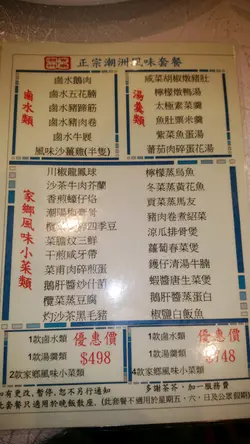 正宗潮洲風味套餐
鹵水類
鹵水鵝肉
鹵水五花腩
鹵水豬蹄筋
鹵水豬肉卷
鹵水牛𦟌
風味沙薑雞(半隻)
湯羹類
咸菜胡椒燉豬肚
檸檬燉鴨湯
太極素菜羹
魚肚粟米羹
紫菜魚蛋湯
蕃茄肉碎蛋花湯
家鄉風味小菜類
川椒龍鳳球
沙茶牛肉芥蘭
香煎蠔仔烙
菜膽炆三鮮
干煎咸牙帶
菜甫肉碎煎蛋
鵝肝醬炒什菌
欖菜蒸豆腐
灼沙茶黑毛豬
檸檬蒸烏魚
冬菜蒸黃花魚
貢菜蒸馬友
豬肉卷煮紹菜
涼瓜排骨煲
蘿蔔春菜煲
鑊仔清湯牛腩
蝦醬唐生菜煲
鵝肝醬蒸蛋白
椒鹽白飯魚
1款鹵水類
1款湯羹類
2款家鄉風味小菜類
優惠價
$498
1款鹵水類
1款湯羹類
4款家鄉風味小菜類
優惠價
$748
有更改,暫停,恕不另行通知
多謝茶芥,加一服務費
套餐只適用於晚飯散座。(此套餐不適用於星期五、六、日及公眾假期)